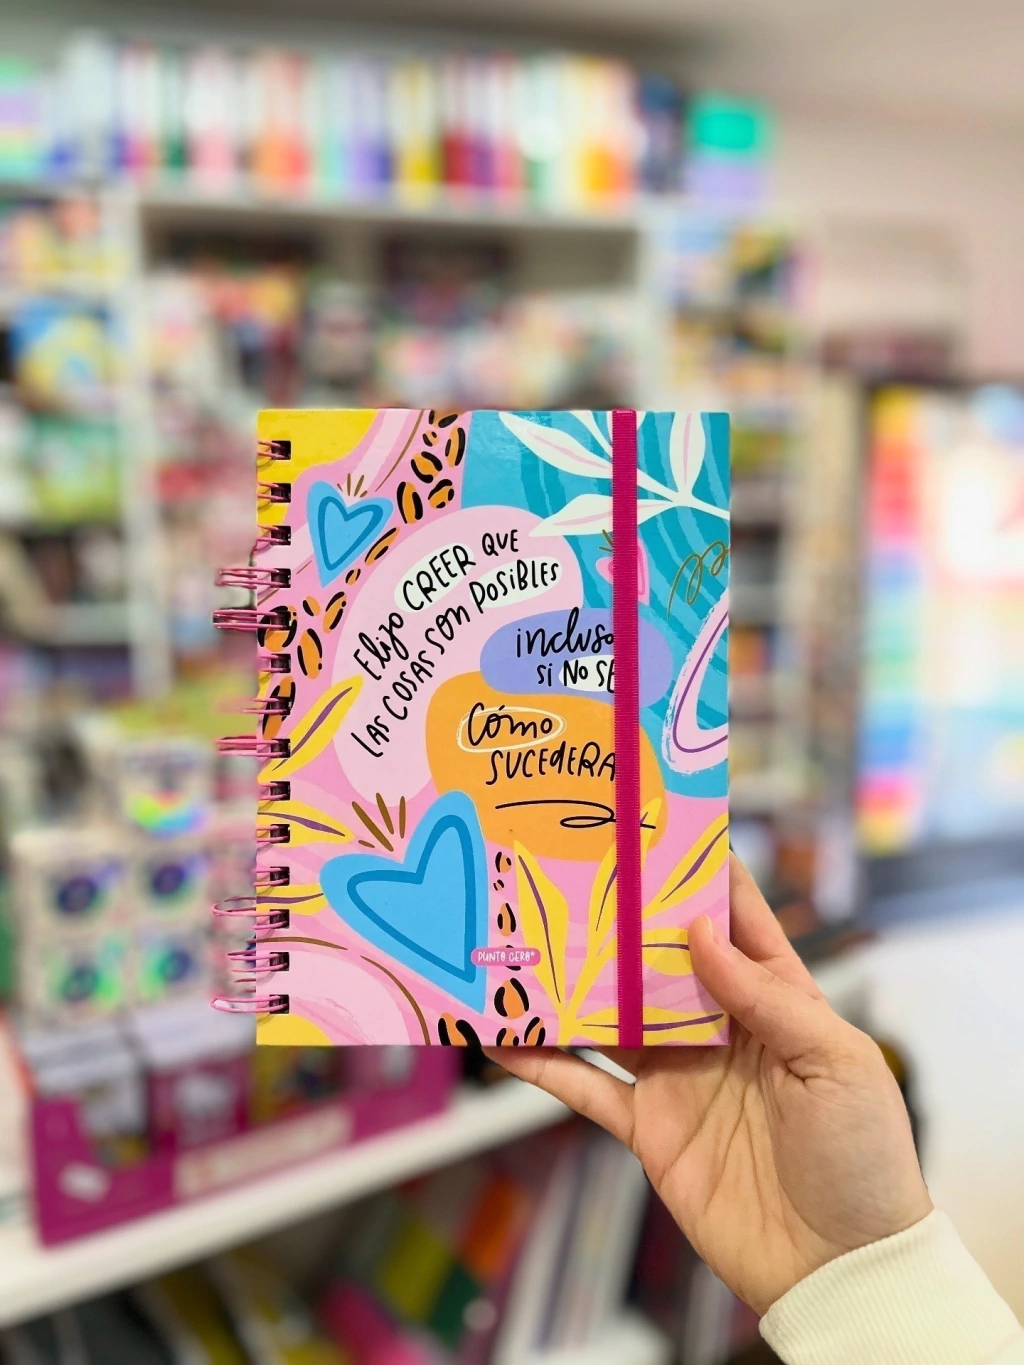 Elijo CREER QUE
LAS COSAS SON POSIBLES
incluso
si NO SÉ
cómo
SUCEDERÁ
PUNTO CERO®